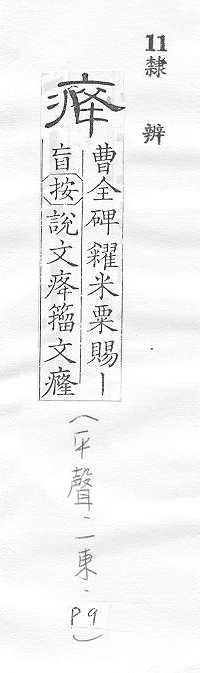 11 隸 辨
𤵸
曹全碑糴米粟賜｜
盲按說文𤵸籀文癃
（平聲·一東·P9）